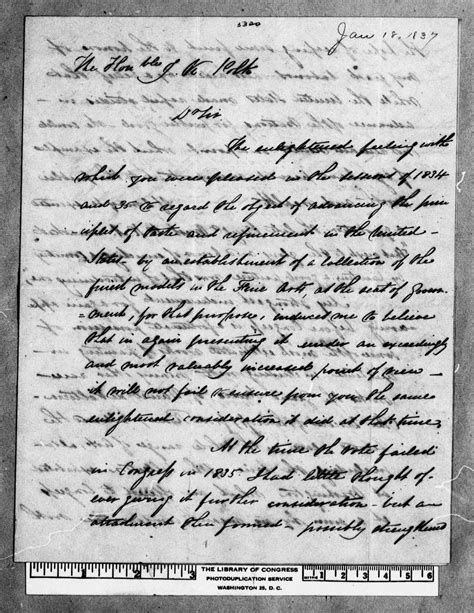 Jan 18. 1837
The Honble J. K. Polk
Dr Sir
The enlightened feeling with
which you were pleased in the sessions of 1834
and 35 to regard the object of advancing the prin
ciples of taste and refinement in the United
States by an establishment of a collection of the
finest models in the Fine Arts, at the seat of Govern
=ment, for that purpose, induced me to believe
that in again presenting it under an exceedingly
and most valuably increased point of view—
it will not fail to ensure from you the same
enlightened consideration it did at that time,
At the time the vote failed
in Congress in 1835. I had little thought of
ever giving it further consideration – but an
attachment then formed – possibly strengthened
THE LIBRARY OF CONGRESS
PHOTODUPLICATION SERVICE
WASHINGTON 25, D. C.
1 2 3 4 5 6